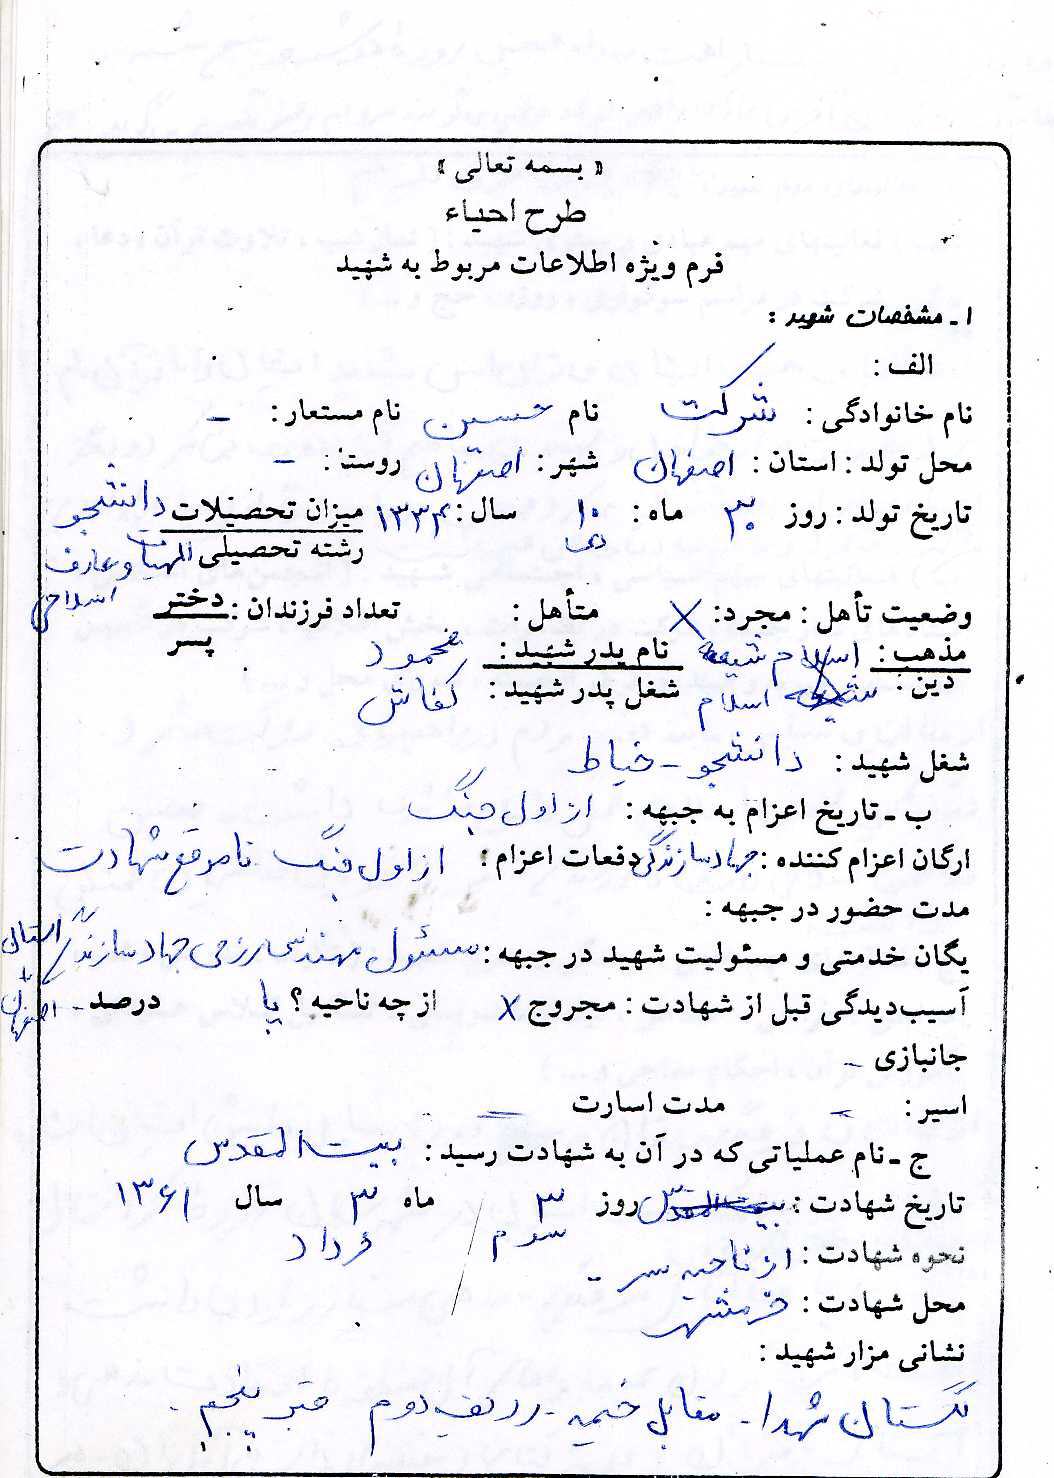 « بسمه تعالی »
طرح احیاء
فرم ویژه اطلاعات مربوط به شهید
۱ ـ مشخصات شهید :
الف :
نام خانوادگی : شرکت نام حسین نام مستعار : –
محل تولد : استان : اصفهان شهر : اصفهان روستا : –
تاریخ تولد : روز ۳۰ ماه : ۱۰ دی سال : ۱۳۳۴ میزان تحصیلات دانشجو
رشته تحصیلی الهیات و معارف اسلامی
وضعیت تأهل : مجرد : X متأهل : تعداد فرزندان : دختر
پسر
مذهب : اسلام شیعه نام پدر شهید : محمود
دین : شیعه اسلام شغل پدر شهید : کفاش
شغل شهید : دانشجو – خیاط
ب ـ تاریخ اعزام به جبهه : از اول جنگ
ارگان اعزام کننده : جهاد سازندگی دفعات اعزام : از اول جنگ تا موقع شهادت
مدت حضور در جبهه :
یگان خدمتی و مسئولیت شهید در جبهه : مسئول مهندسی رزمی جهاد سازندگی استان اصفهان
آسیب‌دیدگی قبل از شهادت : مجروح X از چه ناحیه ؟ پا درصد –
جانبازی –
اسیر : – مدت اسارت –
ج ـ نام عملیاتی که در آن به شهادت رسید : بیت المقدس
تاریخ شهادت : بیت المقدس روز ۳ ماه ۳ سال ۱۳۶۱
سوم / خرداد
نحوه شهادت : از ناحیه سر –
محل شهادت : خرمشهر
نشانی مزار شهید :
گلستان شهدا – مقابل خیمه – ردیف دوم قبر پنجم .